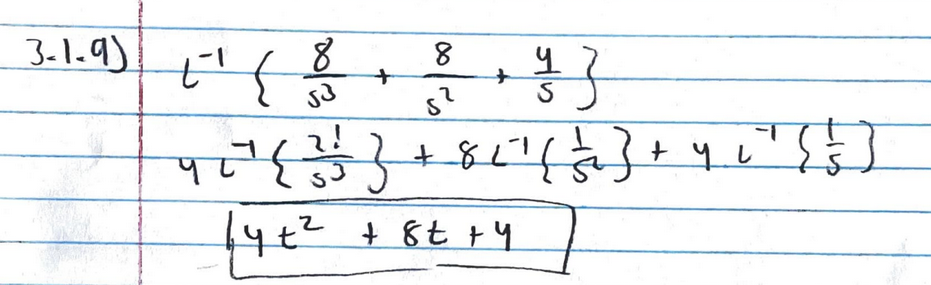 3.1.9) L⁻¹ { 8/s³ + 8/s² + 4/s }
4 L⁻¹ { 2!/s³ } + 8 L⁻¹ { 1/s² } + 4 L⁻¹ { 1/s }
4t² + 8t + 4